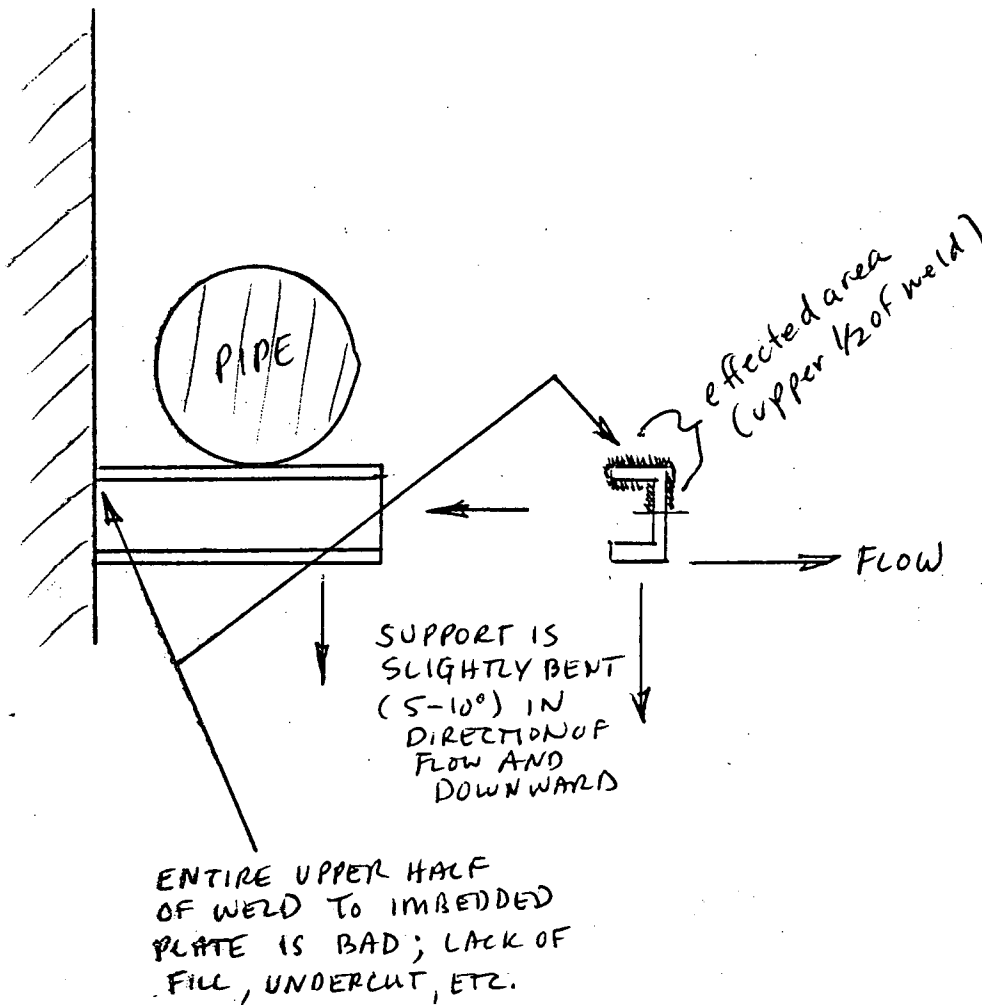 PIPE
effected area
(upper 1/2 of weld)
FLOW
SUPPORT IS
SLIGHTLY BENT
(5-10°) IN
DIRECTION OF
FLOW AND
DOWNWARD
ENTIRE UPPER HALF
OF WELD TO IMBEDDED
PLATE IS BAD; LACK OF
FILL, UNDERCUT, ETC.